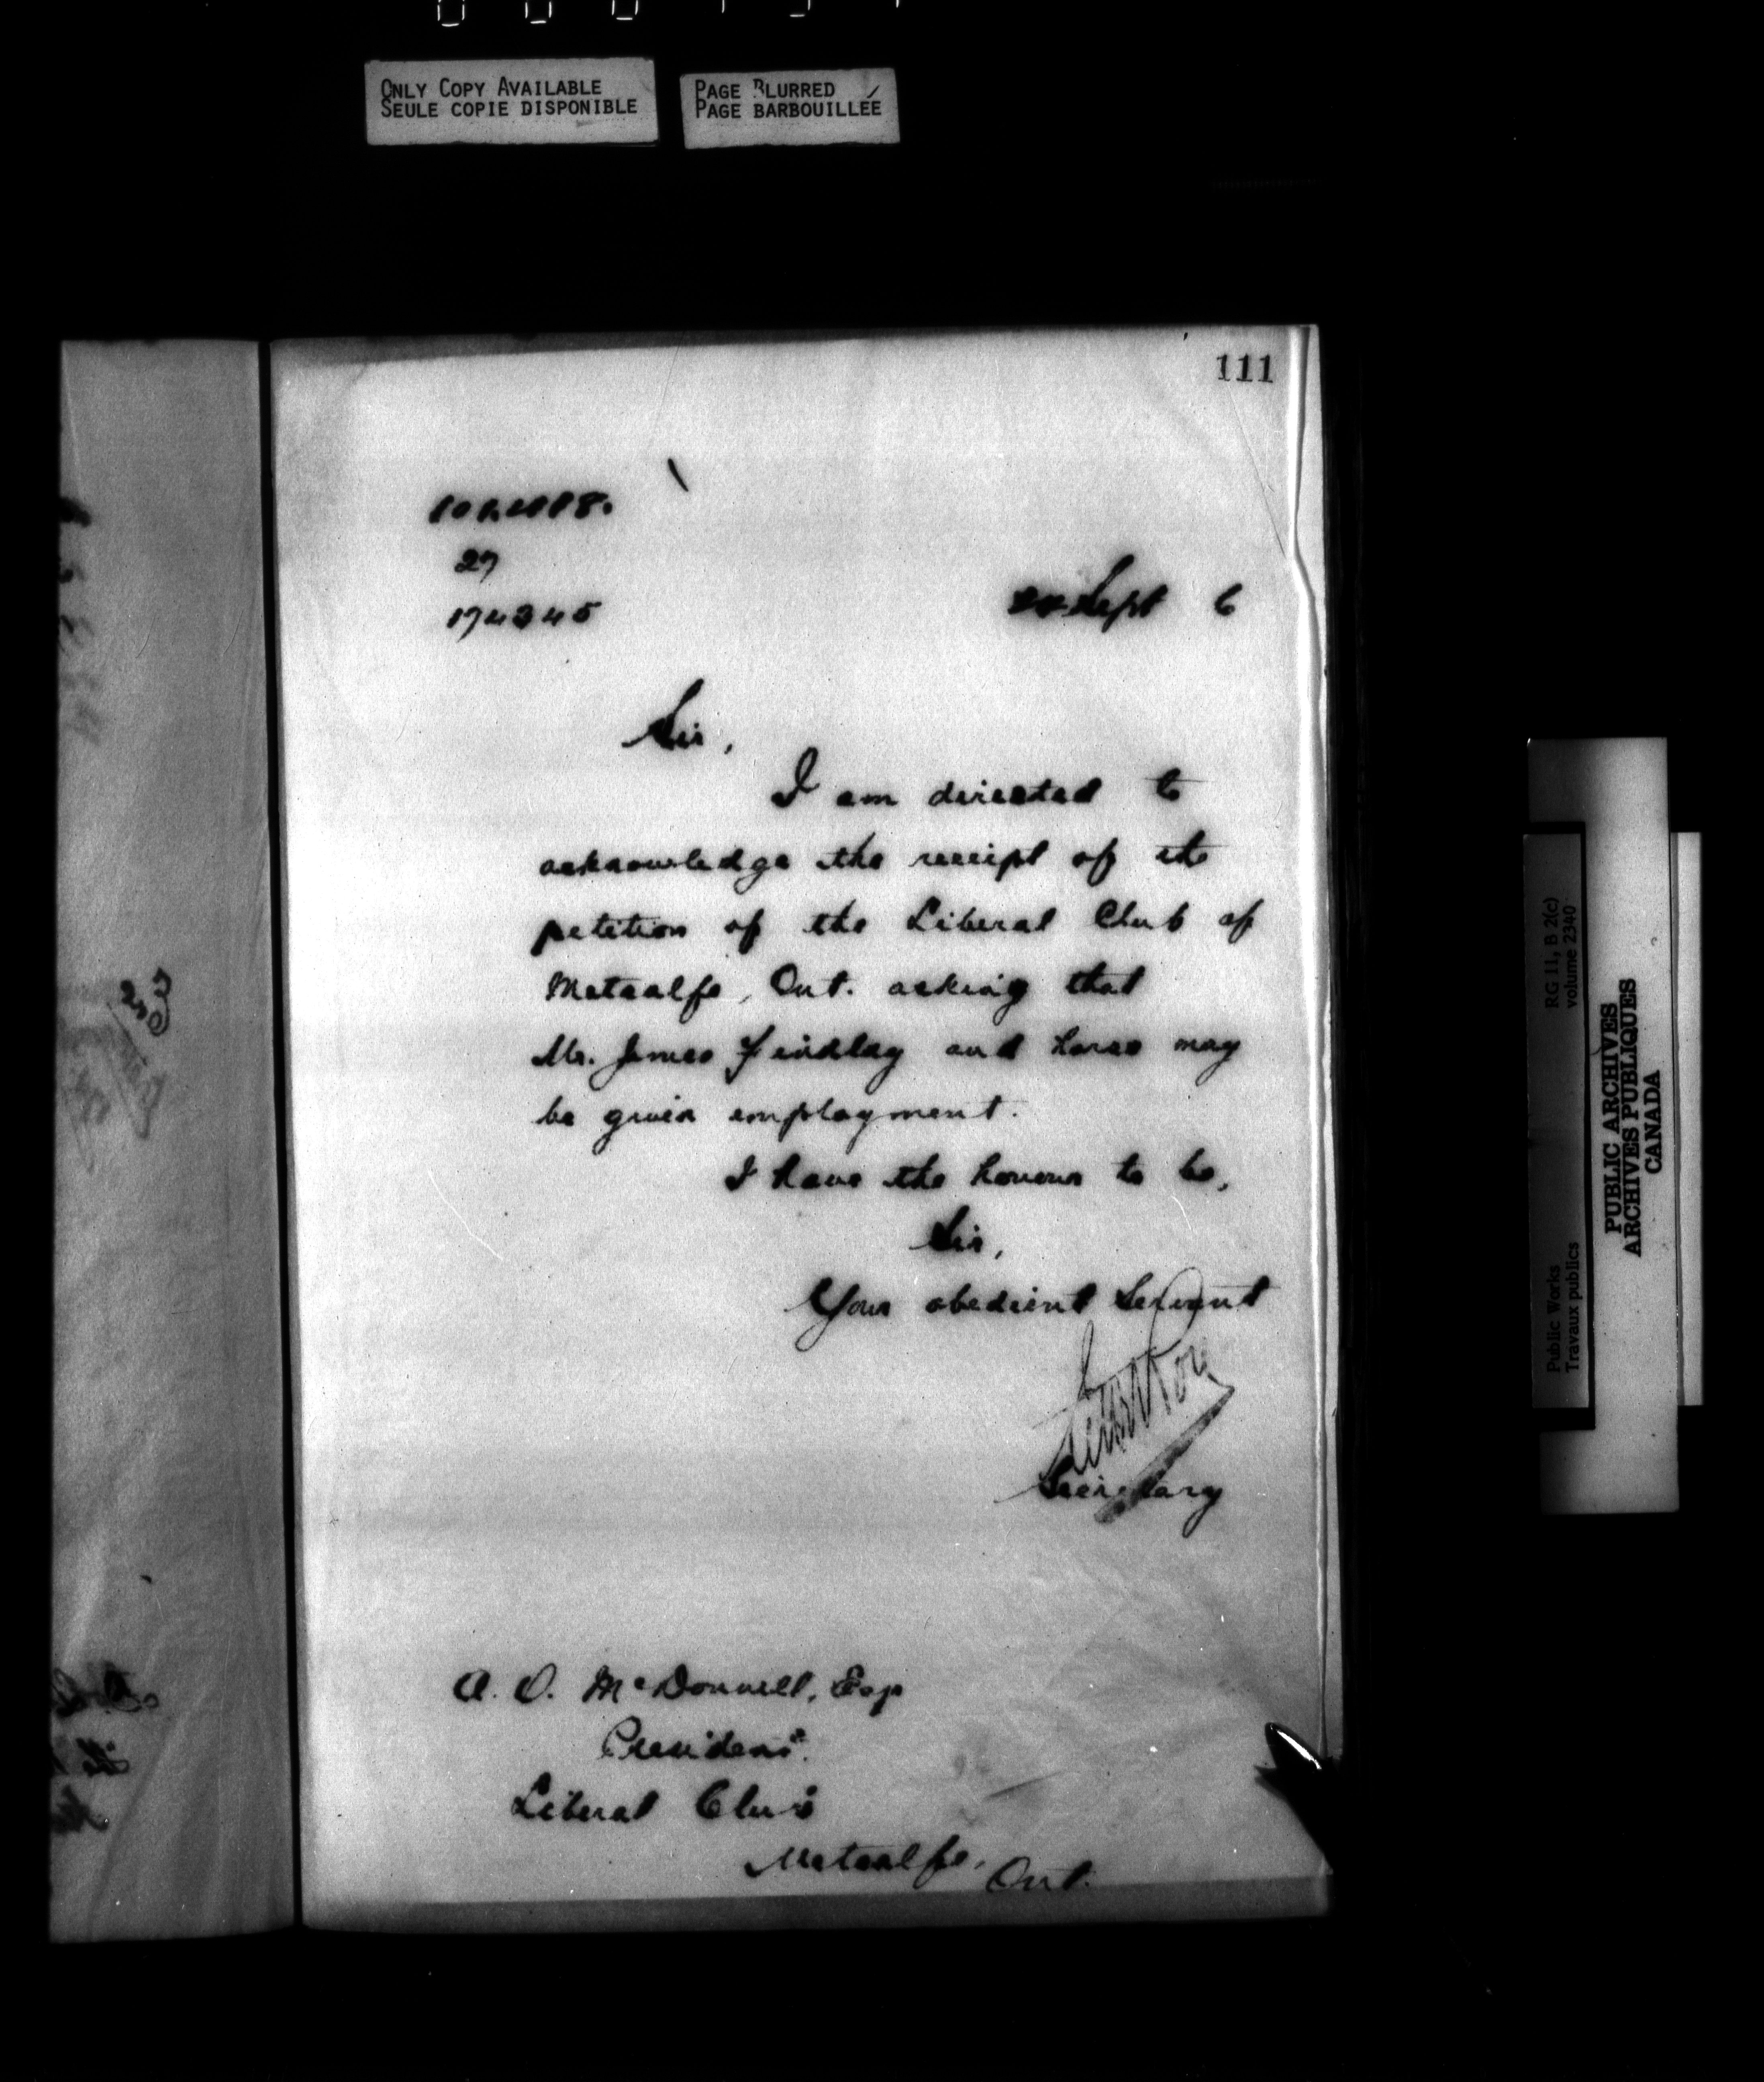 ONLY COPY AVAILABLE
SEULE COPIE DISPONIBLE
PAGE BLURRED
PAGE BARBOUILLÉE
111
27
174345
Sept 6
Sir,
I am directed to
acknowledge the receipt of the
petition of the Liberal Club of
Metcalfe, Ont. asking that
Mr. James Findlay and horse may
be given employment.
I have the honour to be,
Sir,
Your obedient Servant
Secretary
A. D. McDonnell, Esq
President
Liberal Club
Metcalfe, Ont.
RG 11, B 2(c)
volume 2340
Public Works
Travaux publics
PUBLIC ARCHIVES
ARCHIVES PUBLIQUES
CANADA